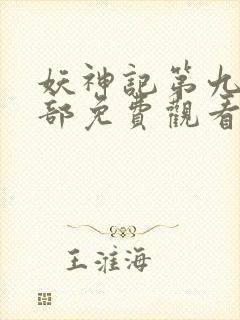 妖神記第九
部免費觀看
王淮海